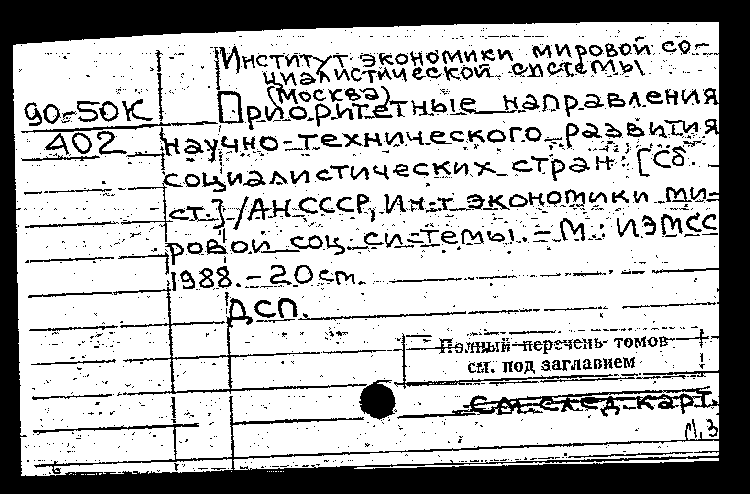 Институт экономики мировой со-
циалистической системы
(Москва)
90-50К
402
Приоритетные направления
научно-технического развития
социалистических стран: [Сб.
ст.] /АН СССР, Ин-т экономики ми-
ровой соц. системы. – М.: ИЭМСС
1988. – 20 см.
ДСП.
Полный перечень томов
см. под заглавием
См. след. карт.
М, З